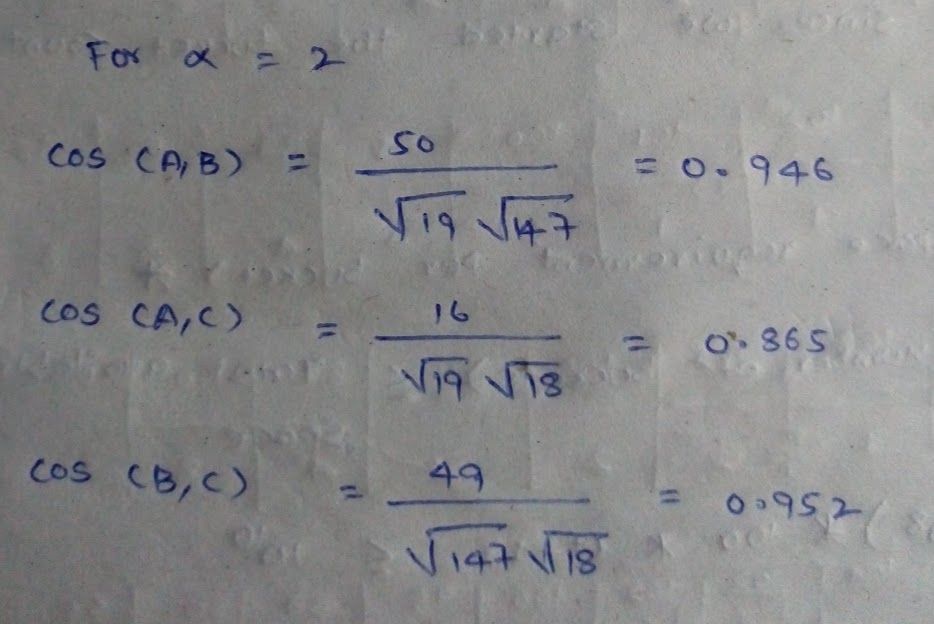 For α = 2
cos (A,B) = 50 / √19 √147 = 0.946
cos (A,C) = 16 / √19 √18 = 0.865
cos (B,C) = 49 / √147 √18 = 0.952